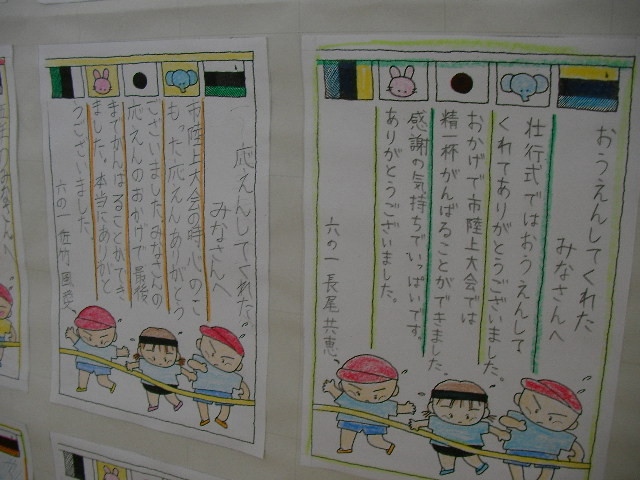 おうえんしてくれた
みなさんへ
壮行式ではおうえんして
くれてありがとうございました。
おかげで市陸上大会では
精一杯がんばることができました。
感謝の気持ちでいっぱいです。
ありがとうございました。
六の一 長尾共恵
応えんしてくれた
みなさんへ
市陸上大会の時、心のこ
もった応えんありがとう
ございました。みなさんの
応えんのおかげで最後
までがんばることができ
ました。本当にありがと
うございました。
六の一 佐竹